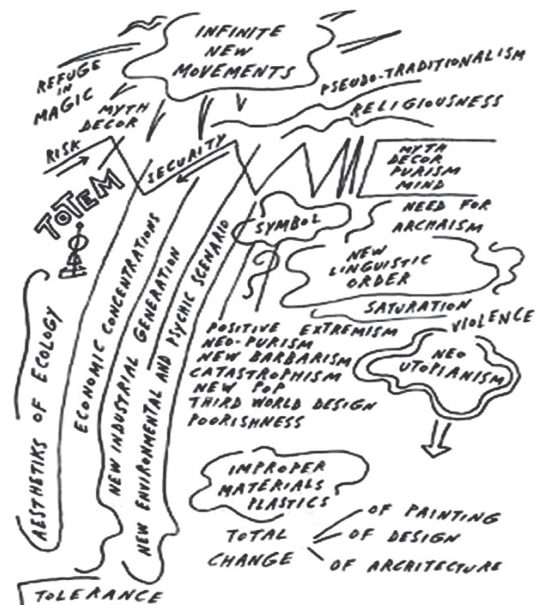 INFINITE
NEW
MOVEMENTS
REFUGE
IN
MAGIC
PSEUDO-TRADITIONALISM
RELIGIOUSNESS
MYTH
DECOR
RISK
SECURITY
MYTH
DECOR
PURISM
MIND
TOTEM
SYMBOL
NEED FOR
ARCHAISM
NEW
LINGUISTIC
ORDER
SATURATION
VIOLENCE
AESTHETIKS OF ECOLOGY
ECONOMIC CONCENTRATIONS
NEW INDUSTRIAL GENERATION
NEW ENVIRONMENTAL AND PSYCHIC SCENARIO
POSITIVE EXTREMISM
NEO-PURISM
NEW BARBARISM
CATASTROPHISM
NEW POP
THIRD WORLD DESIGN
POORISHNESS
NEO
UTOPIANISM
IMPROPER
MATERIALS
PLASTICS
TOTAL
CHANGE
OF PAINTING
OF DESIGN
OF ARCHITECTURE
TOLERANCE